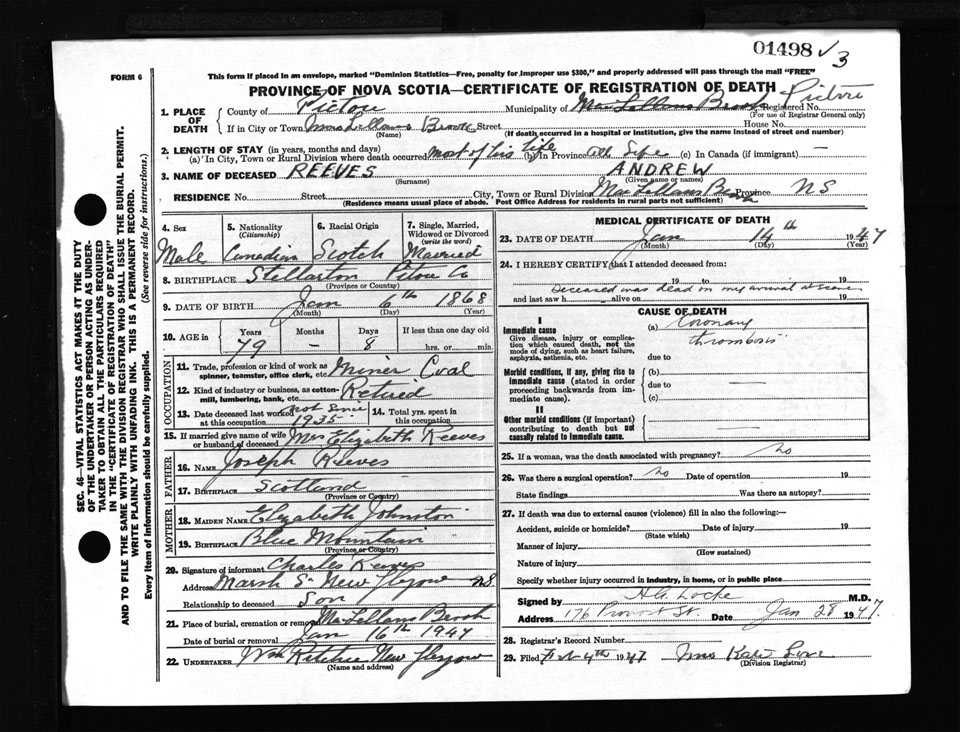 01498 ✓ 3
FORM 6
This form if placed in an envelope, marked "Dominion Statistics—Free, penalty for improper use $300," and properly addressed will pass through the mail "FREE"
PROVINCE OF NOVA SCOTIA—CERTIFICATE OF REGISTRATION OF DEATH
1. PLACE OF DEATH
County of Pictou Municipality of MacLellans Brook Registered No. Pictou
(For use of Registrar General only)
If in City or Town MacLellans Brook Street House No.
(Name) (If death occurred in a hospital or institution, give the name instead of street and number)
2. LENGTH OF STAY (in years, months and days)
(a) In City, Town or Rural Division where death occurred most of his life (b) In Province all life (c) In Canada (if immigrant) —
3. NAME OF DECEASED REEVES ANDREW
(Surname) (Given name or names)
RESIDENCE No. Street City, Town or Rural Division MacLellans Brook Province N S
(Residence means usual place of abode. Post Office Address for residents in rural parts not sufficient)
4. Sex Male
5. Nationality (Citizenship) Canadian
6. Racial Origin Scotch
7. Single, Married, Widowed or Divorced (write the word) Married
8. BIRTHPLACE Stellarton Pictou Co
(Province or Country)
9. DATE OF BIRTH Jan 6th 1868
(Month) (Day) (Year)
10. AGE in Years Months Days If less than one day old
79 – 8 hrs. or min.
OCCUPATION
11. Trade, profession or kind of work as spinner, teamster, office clerk, etc. Miner Coal
12. Kind of industry or business, as cotton-mill, lumbering, bank, etc. Retired
13. Date deceased last worked at this occupation not since 1935
14. Total yrs. spent in this occupation
15. If married give name of wife or husband of deceased Mrs Elizabeth Reeves
FATHER
16. NAME Joseph Reeves
17. BIRTHPLACE Scotland
(Province or Country)
MOTHER
18. MAIDEN NAME Elizabeth Johnston
19. BIRTHPLACE Blue Mountain
(Province or Country)
20. Signature of informant Charles Reeves
Address Marsh S New Glasgow N.S.
Relationship to deceased Son
21. Place of burial, cremation or removal MacLellans Brook
Date of burial or removal Jan 16th 1947
22. UNDERTAKER Wm Ritchie New Glasgow
(Name and address)
MEDICAL CERTIFICATE OF DEATH
23. DATE OF DEATH Jan 14th 1947
(Month) (Day) (Year)
24. I HEREBY CERTIFY that I attended deceased from:
19 to 19
Deceased was dead on my arrival
and last saw h alive on 19
CAUSE OF DEATH
I
Immediate cause
Give disease, injury or complication which caused death, not the mode of dying, such as heart failure, asphyxia, asthenia, etc.
(a) Coronary thrombosis
due to
Morbid conditions, if any, giving rise to immediate cause (stated in order proceeding backwards from immediate cause).
(b) —
due to
(c)
II
Other morbid conditions (if important) contributing to death but not causally related to immediate cause.
—
25. If a woman, was the death associated with pregnancy? No
26. Was there a surgical operation? No Date of operation 19
State findings Was there an autopsy?
27. If death was due to external causes (violence) fill in also the following:—
Accident, suicide or homicide? Date of injury 19
(State which)
Manner of injury
(How sustained)
Nature of injury
Specify whether injury occurred in industry, in home, or in public place
Signed by H G Locke M.D.
Address 176 Provost St. Date Jan 28 1947.
28. Registrar's Record Number
29. Filed Feb 4th 1947 Mrs Kate Love
(Division Registrar)
SEC. 46—VITAL STATISTICS ACT MAKES IT THE DUTY OF THE UNDERTAKER OR PERSON ACTING AS UNDERTAKER TO OBTAIN ALL THE PARTICULARS REQUIRED IN THE "CERTIFICATE OF REGISTRATION OF DEATH" AND TO FILE THE SAME WITH THE DIVISION REGISTRAR WHO SHALL ISSUE THE BURIAL PERMIT.
WRITE PLAINLY WITH UNFADING INK. THIS IS A PERMANENT RECORD.
Every item of information should be carefully supplied. (See reverse side for instructions.)